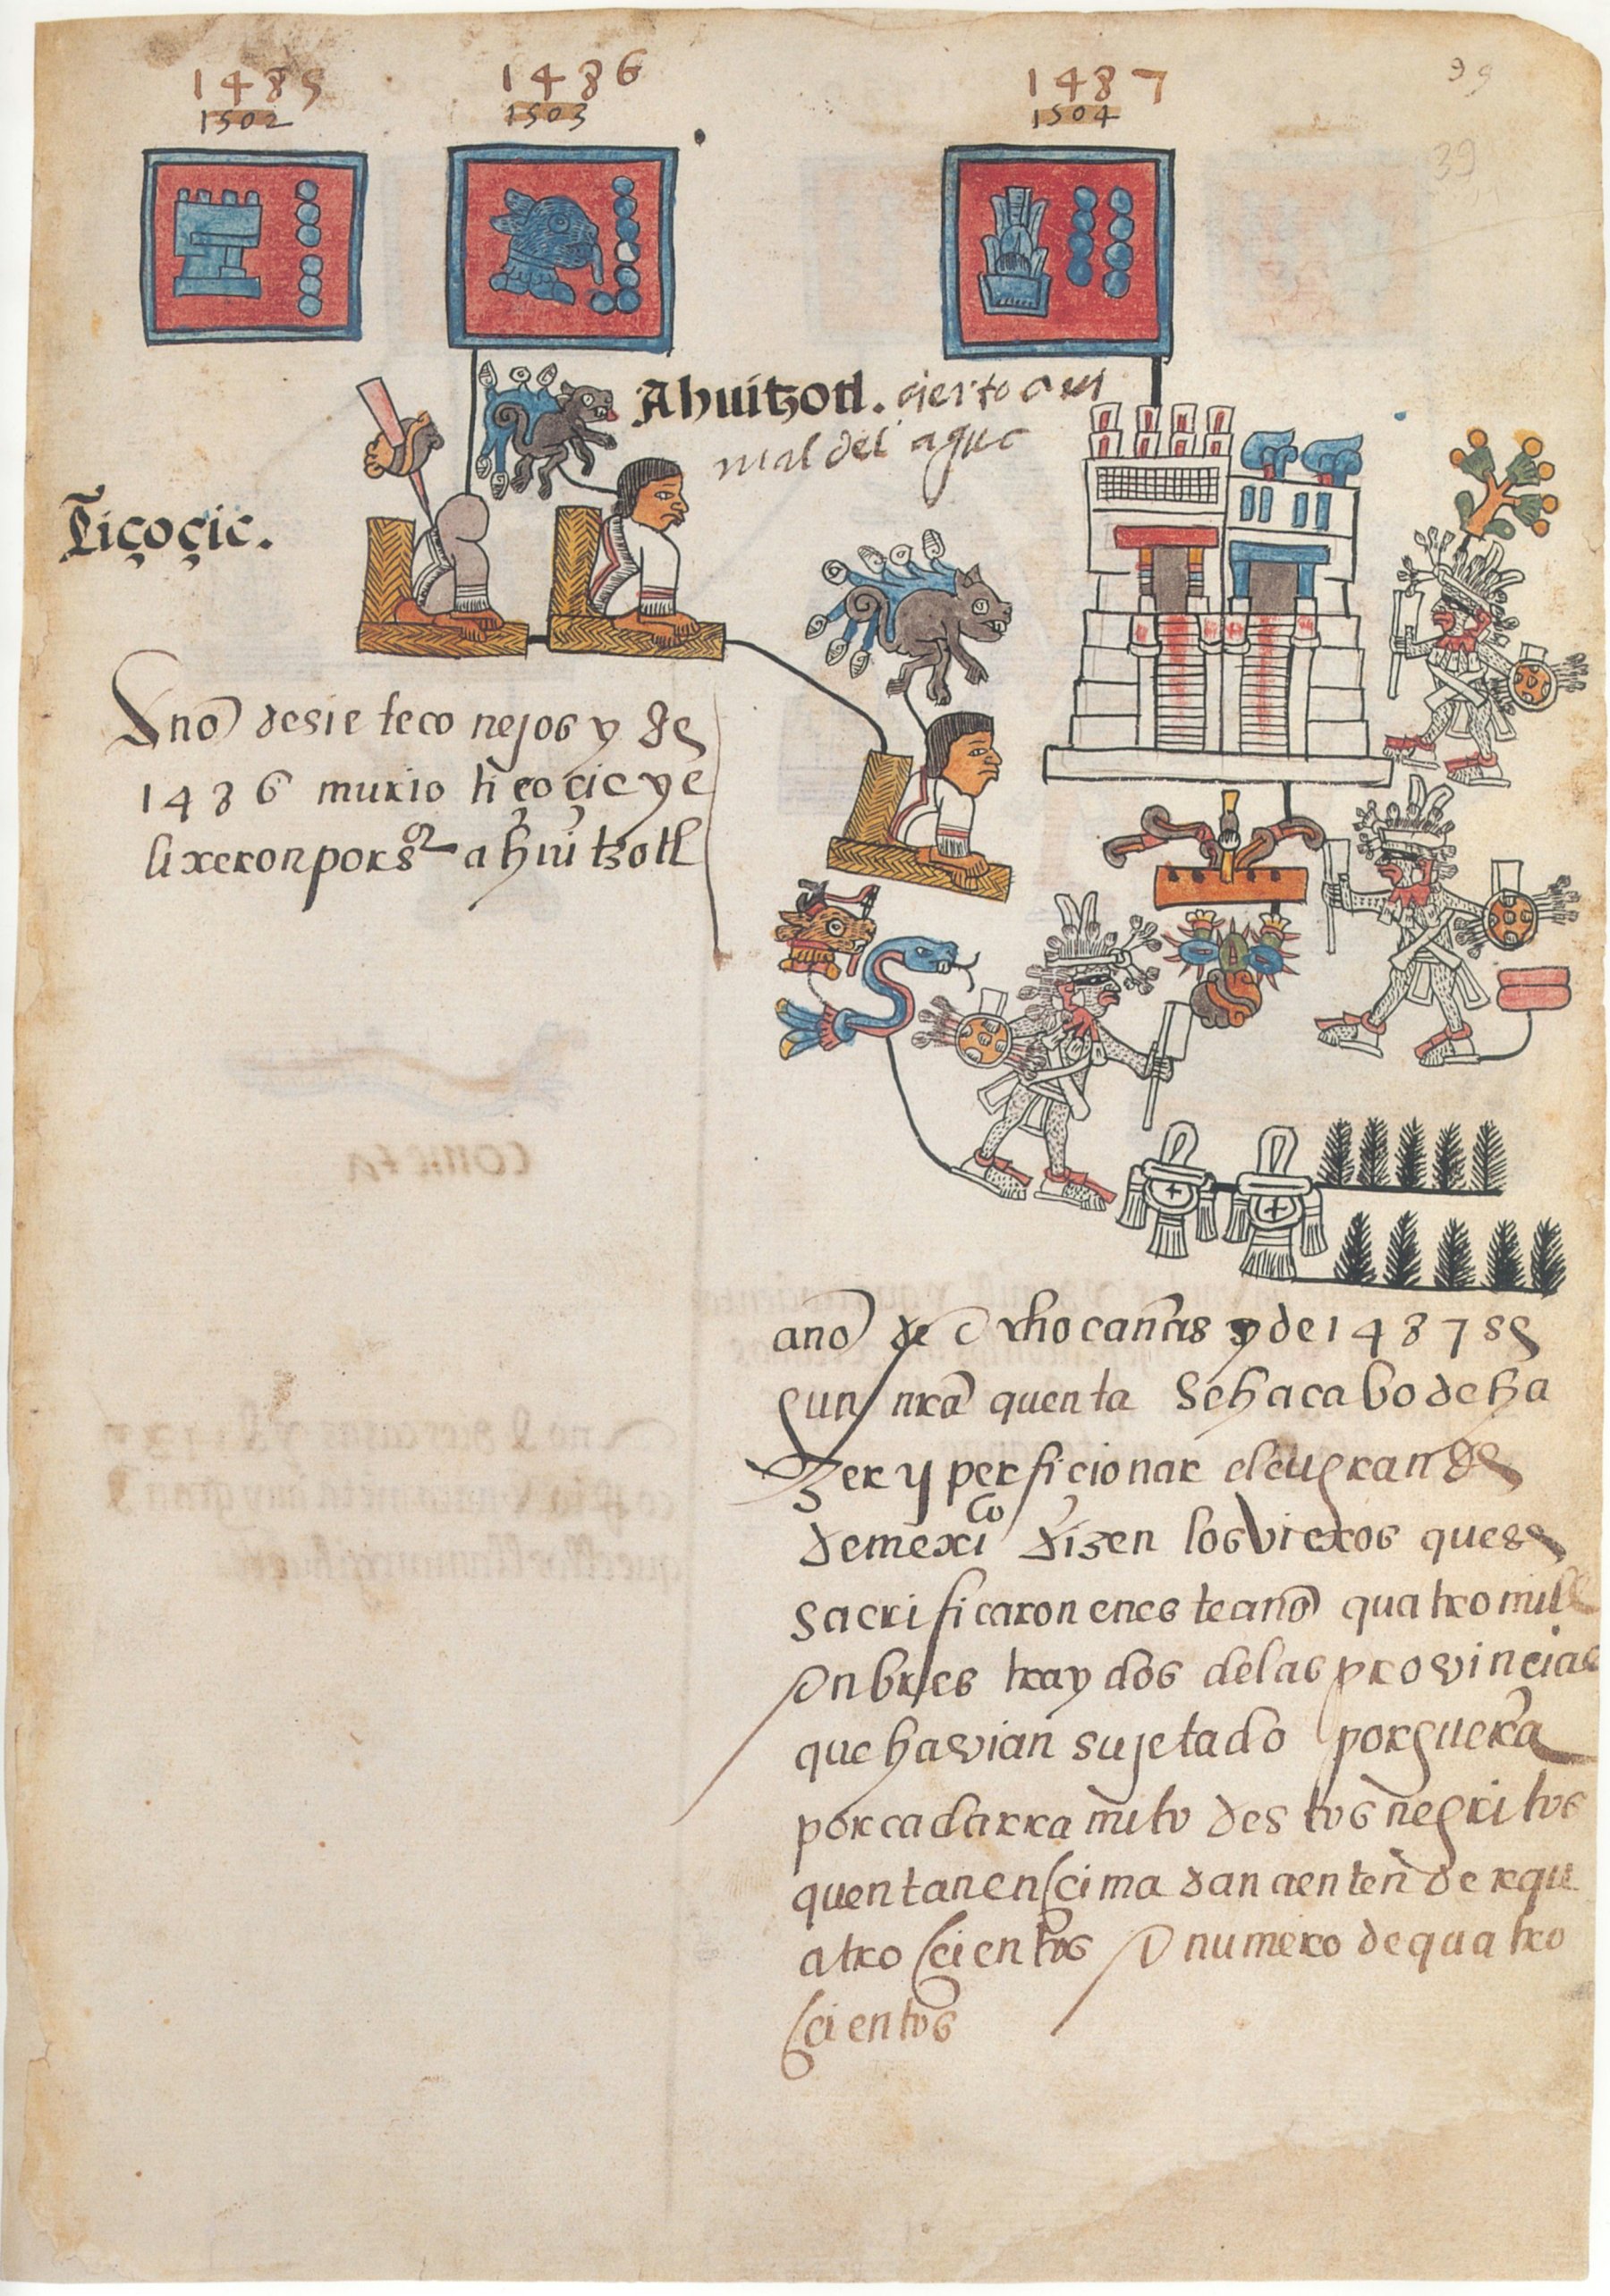 1485
1502
1486
1503
1487
1504
39
39
Ahuitzotl. cierto ani
mal del agua
Tiçoçic.
Año de siete conejos y de
1486 murio tiçoçic y e
lixeron por sr ahuitzotl
año de ocho cañas y de 1487 se
gun nra quenta se hacabo de ha
zer y perficionar el cu grande
de mexico dizen los viexos que se
sacrificaron en este año quatro mill
onbres traydos de las provincias
que havian sujetado por guerra
por cada rramito destos negritos
que [...] ençima dan a entender qu
atro cientos o numero de quatro
cientos